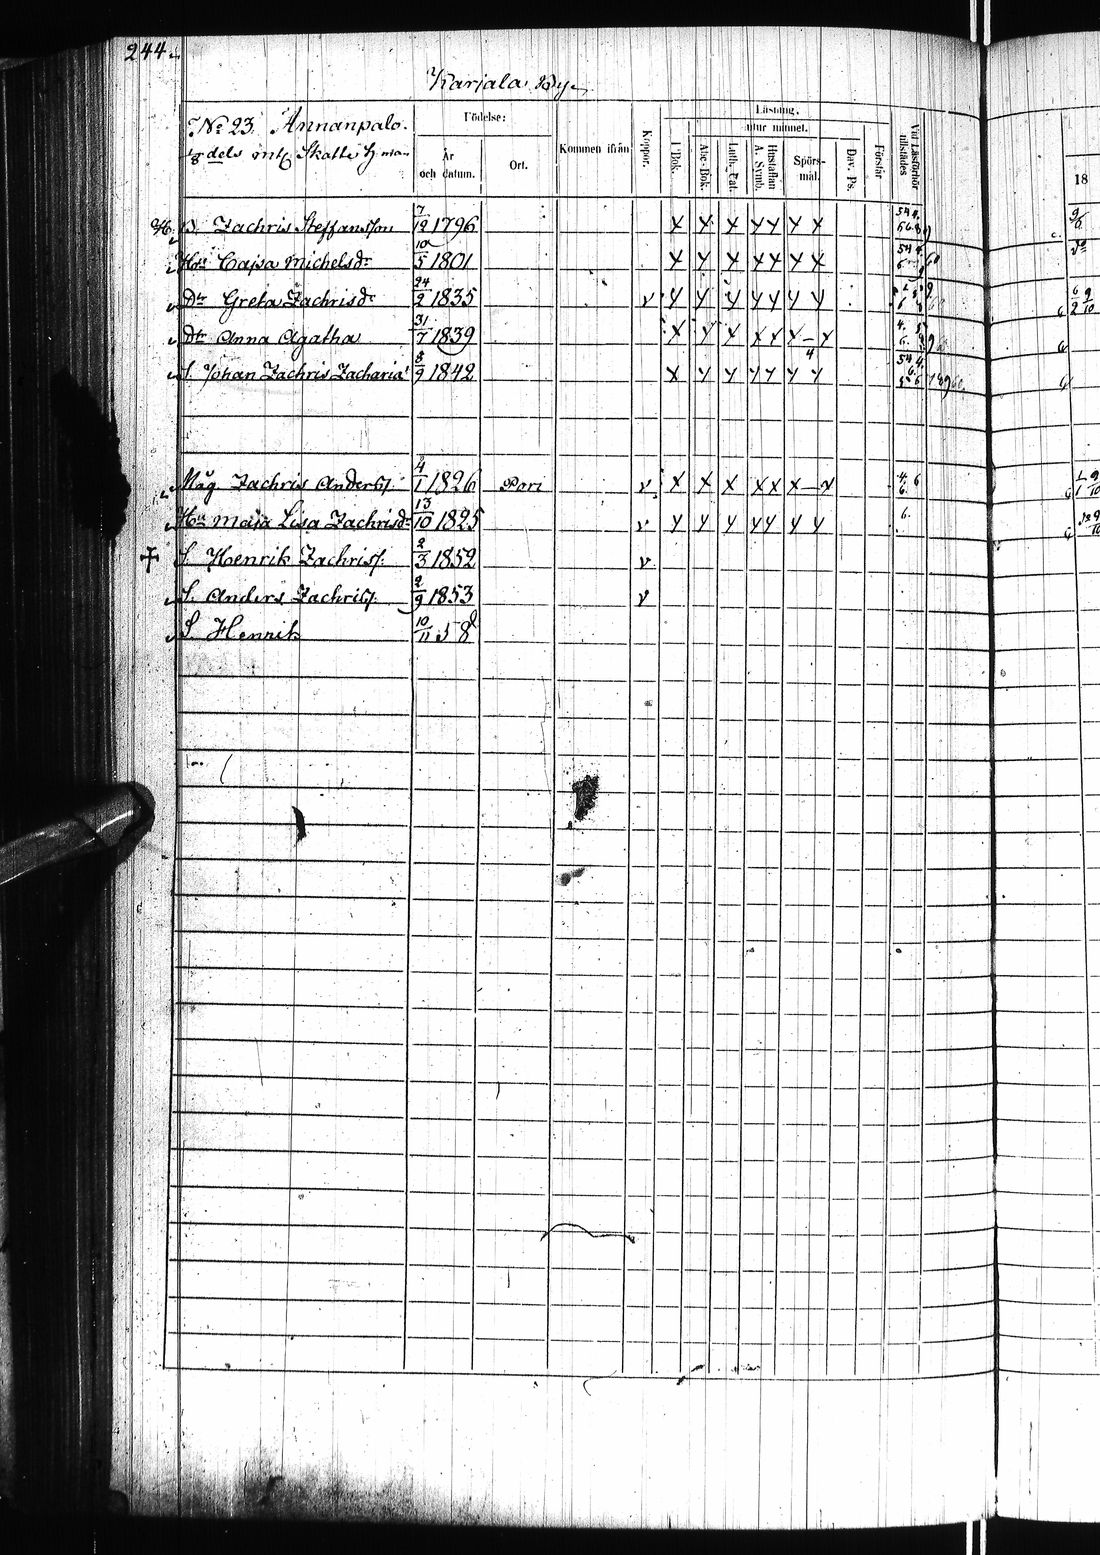 244.
Karjala By.
No 23 Annanpalo.
1/8 dels mtl Skatte H man
Födelse:
År och datum.
Ort.
Kommen ifrån
Koppor.
Läsning,
utur minnet.
I Bok.
Abc-Bok.
Luth. Cat.
Hustaflan A. Symb.
Spörs-mål.
Dav. Ps.
Förstår
Vid Läsförhör tillstädes
18
B. Zachris Steffansson 7/12 1796 X X X X X X X
Hu Cajsa Michelsdr 10/5 1801 X X X X X X X
Dtr Greta Zachrisdr 24/2 1835 v X X X X X X X 6/2 9/10
Dtr Anna Agatha 31/7 1839 X X X X X X – X 4
S. Johan Zachris Zacharias 8/9 1842 X X X X X X X
Måg Zachris Anderss. 4/1 1826 Pori v X X X X X X – X
Hu Maja Lisa Zachrisdr 13/10 1825 v X X X X X X X 6.
† S. Henrik Zachriss. 2/3 1852 v
S. Anders Zachriss. 2/9 1853 v
S. Henrik 10/11 58